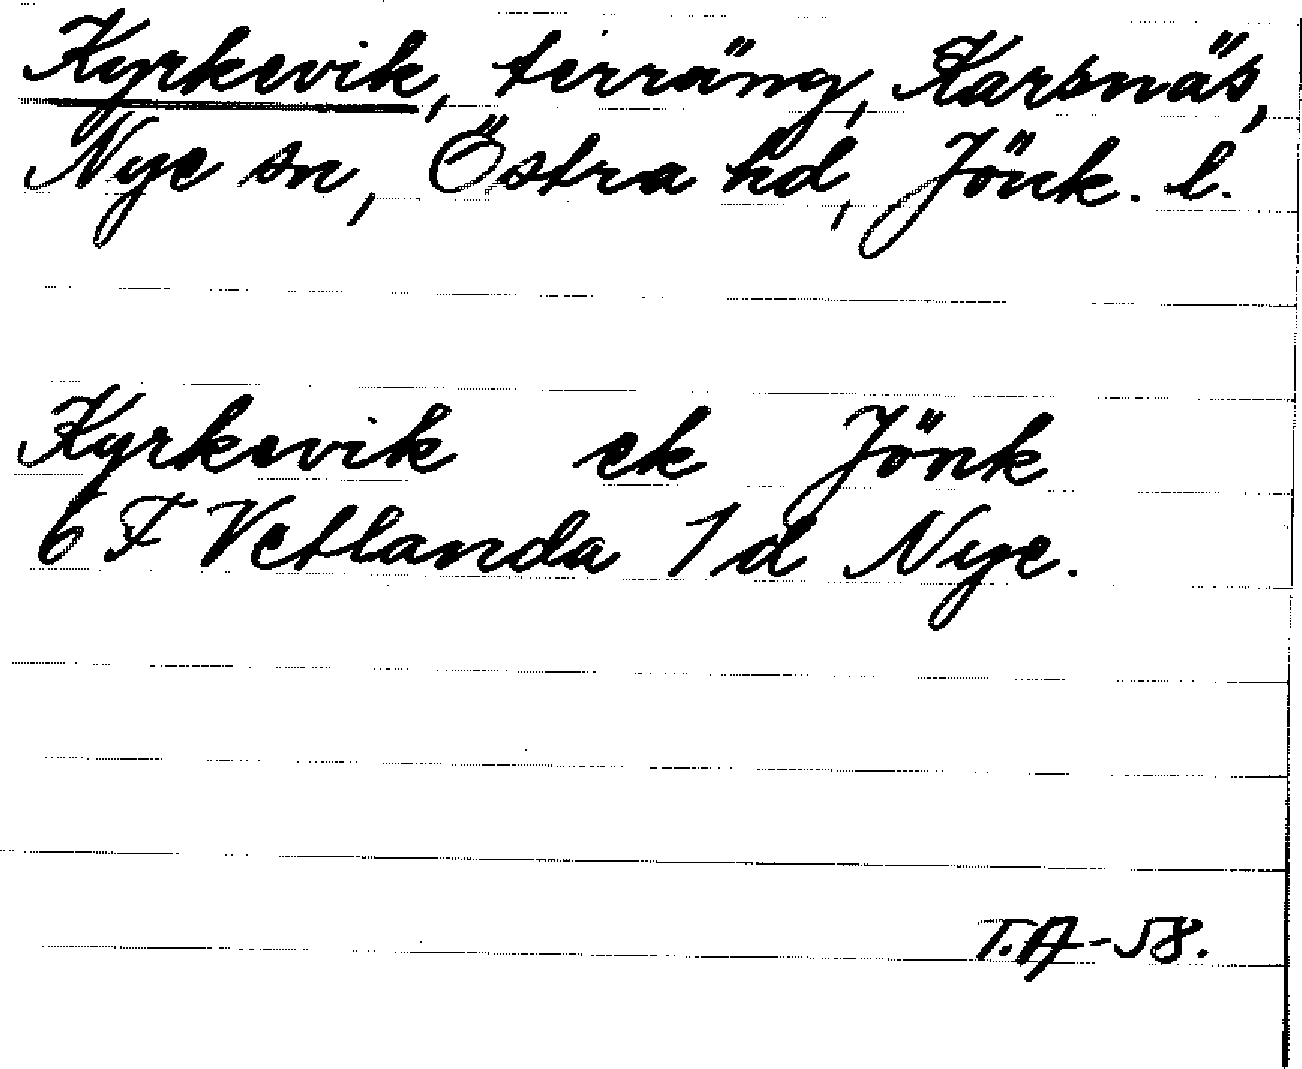 Kyrkevik, terräng, Karsnäs,
Nye sn, Östra hd, Jönk. l.
Kyrkevik ek Jönk
6 F Vetlanda 1 d Nye.
T.A-58.